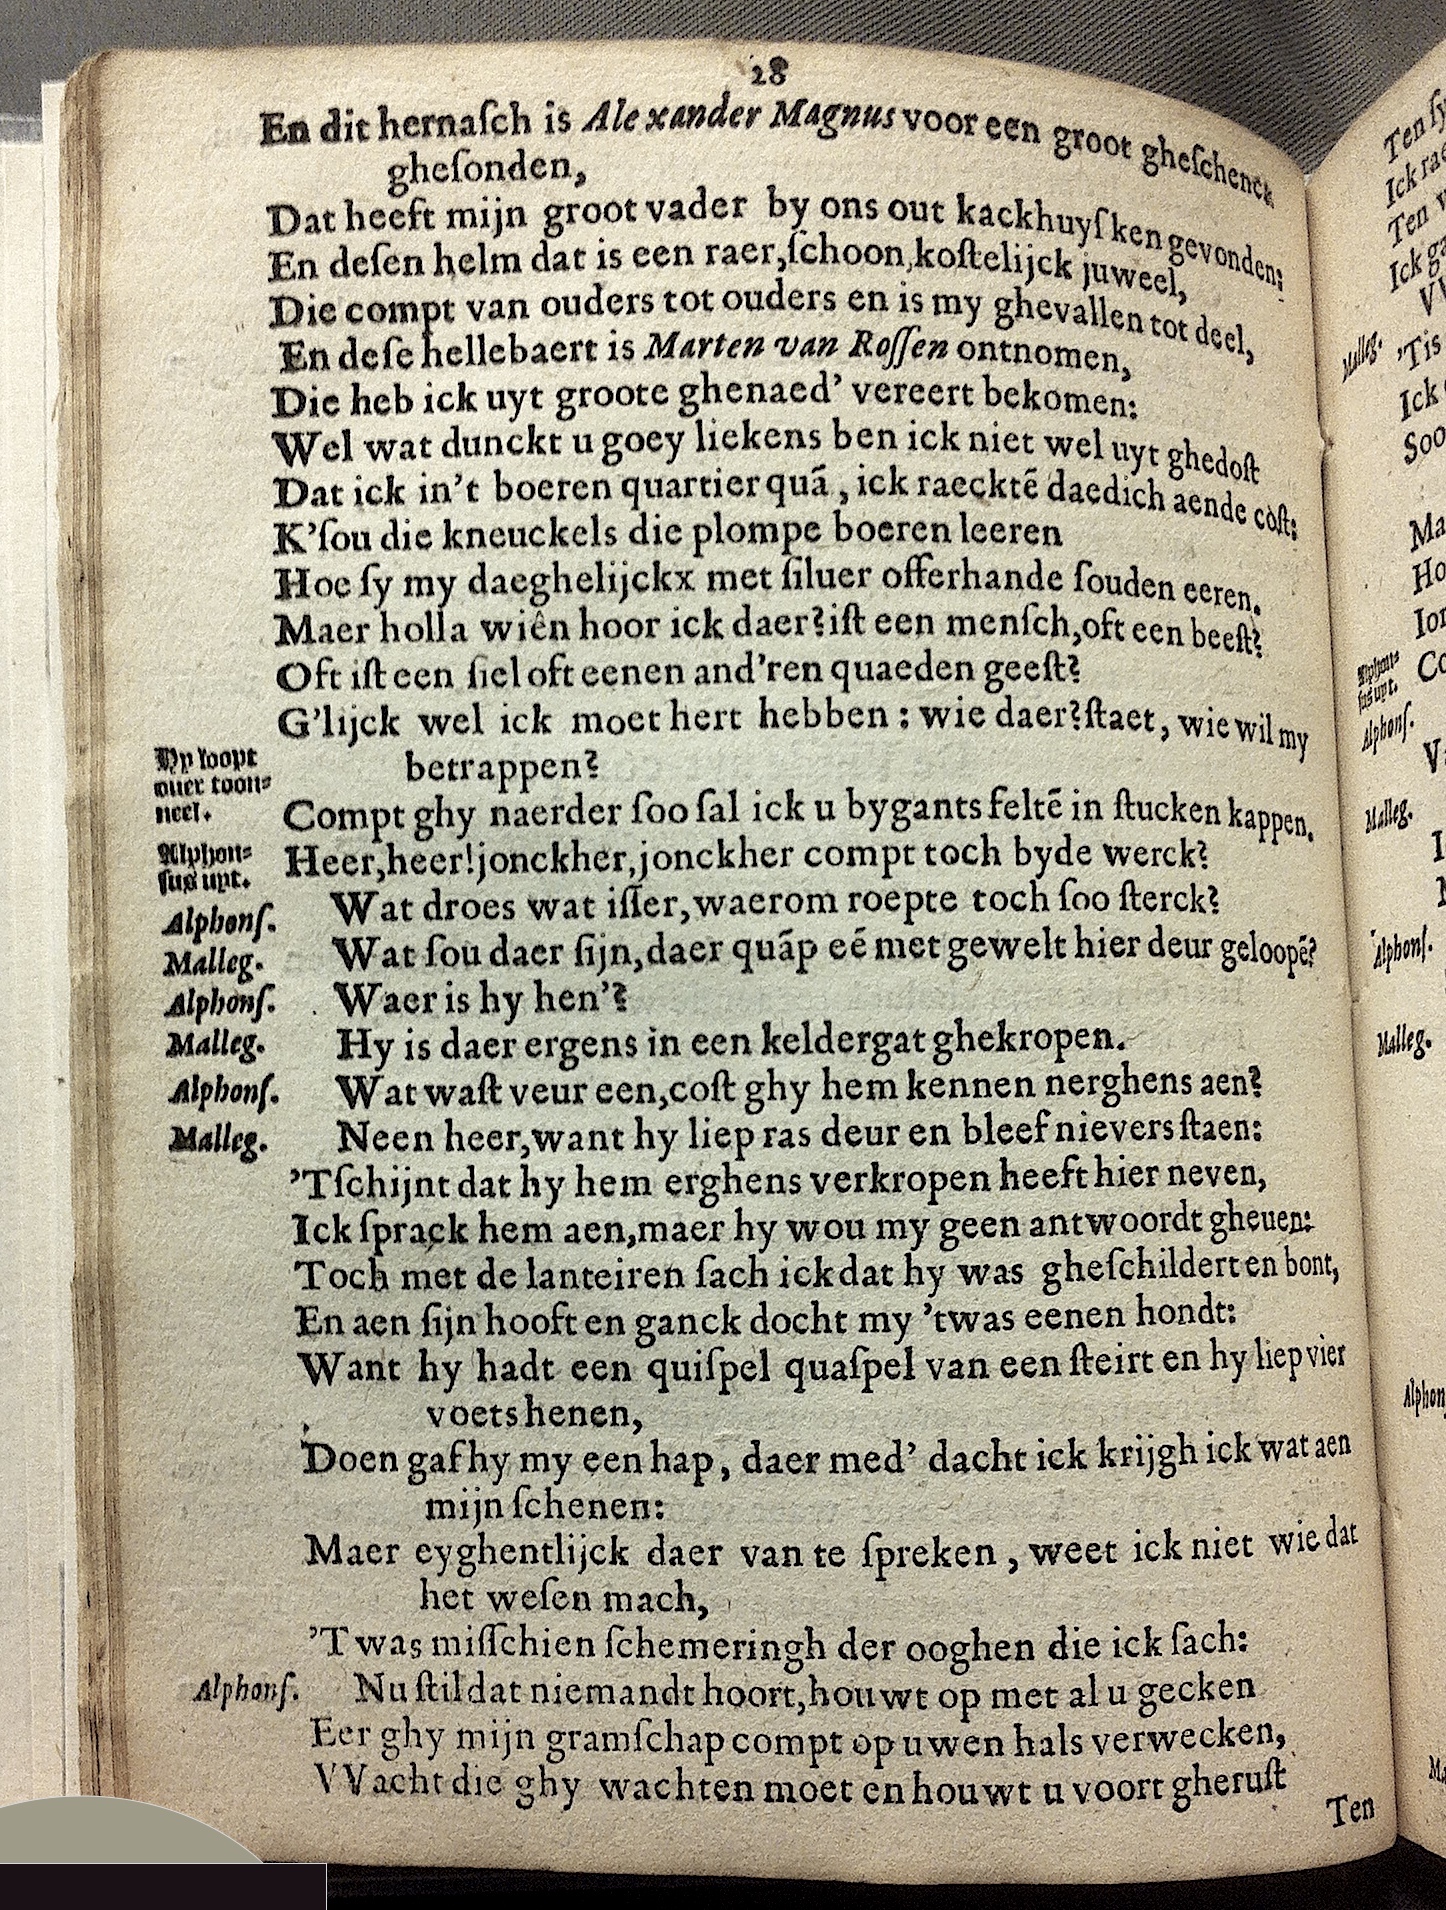 28
En dit hernaſch is Alexander Magnus voor een groot gheſchenck
gheſonden,
Dat heeft mijn groot vader by ons out kackhuyſken gevonden:
En deſen helm dat is een raer, ſchoon, koſtelijck juweel,
Die compt van ouders tot ouders en is my ghevallen tot deel,
En deſe hellebaert is Marten van Roſſen ontnomen,
Die heb ick uyt groote ghenaed' vereert bekomen:
Wel wat dunckt u goey liekens ben ick niet wel uyt ghedoſt
Dat ick in't boeren quartier quã, ick raecktẽ daedich aende coſt:
K'ſou die kneuckels die plompe boeren leeren
Hoe ſy my daeghelijckx met ſiluer offerhande ſouden eeren.
Maer holla wiên hoor ick daer? iſt een menſch, oft een beeſt?
Oft iſt een ſiel oft eenen and'ren quaeden geeſt?
G'lijck wel ick moet hert hebben: wie daer? ſtaet, wie wil my
betrappen?
Hy loopt
ouer toon-
neel.
Compt ghy naerder ſoo ſal ick u bygants feltẽ in ſtucken kappen.
Alphon-
ſus uyt.
Heer, heer! jonckher, jonckher compt toch byde werck?
Alphonſ. Wat droes wat iſſer, waerom roepte toch ſoo ſterck?
Malleg. Wat ſou daer ſijn, daer quãp eẽ met gewelt hier deur geloopẽ?
Alphonſ. Waer is hy hen'?
Malleg. Hy is daer ergens in een keldergat ghekropen.
Alphonſ. Wat waſt veur een, coſt ghy hem kennen nerghens aen?
Malleg. Neen heer, want hy liep ras deur en bleef nievers ſtaen:
'Tſchijnt dat hy hem erghens verkropen heeft hier neven,
Ick ſprack hem aen, maer hy wou my geen antwoordt gheuen:
Toch met de lanteiren ſach ick dat hy was gheſchildert en bont,
En aen ſijn hooft en ganck docht my 'twas eenen hondt:
Want hy hadt een quiſpel quaſpel van een ſteirt en hy liep vier
voets henen,
Doen gaf hy my een hap, daer med' dacht ick krijgh ick wat aen
mijn ſchenen:
Maer eyghentlijck daer van te ſpreken, weet ick niet wie dat
het weſen mach,
'Twas miſſchien ſchemeringh der ooghen die ick ſach:
Alphonſ. Nu ſtil dat niemandt hoort, houwt op met al u gecken
Eer ghy mijn gramſchap compt op uwen hals verwecken,
VVacht die ghy wachten moet en houwt u voort gheruſt
Ten
Ten
Ick
Ten
Ick
Malleg. 'Tis
Ick
Soo
Alphon-
ſus uyt.
Alphonſ.
Malleg.
Alphonſ.
Malleg.